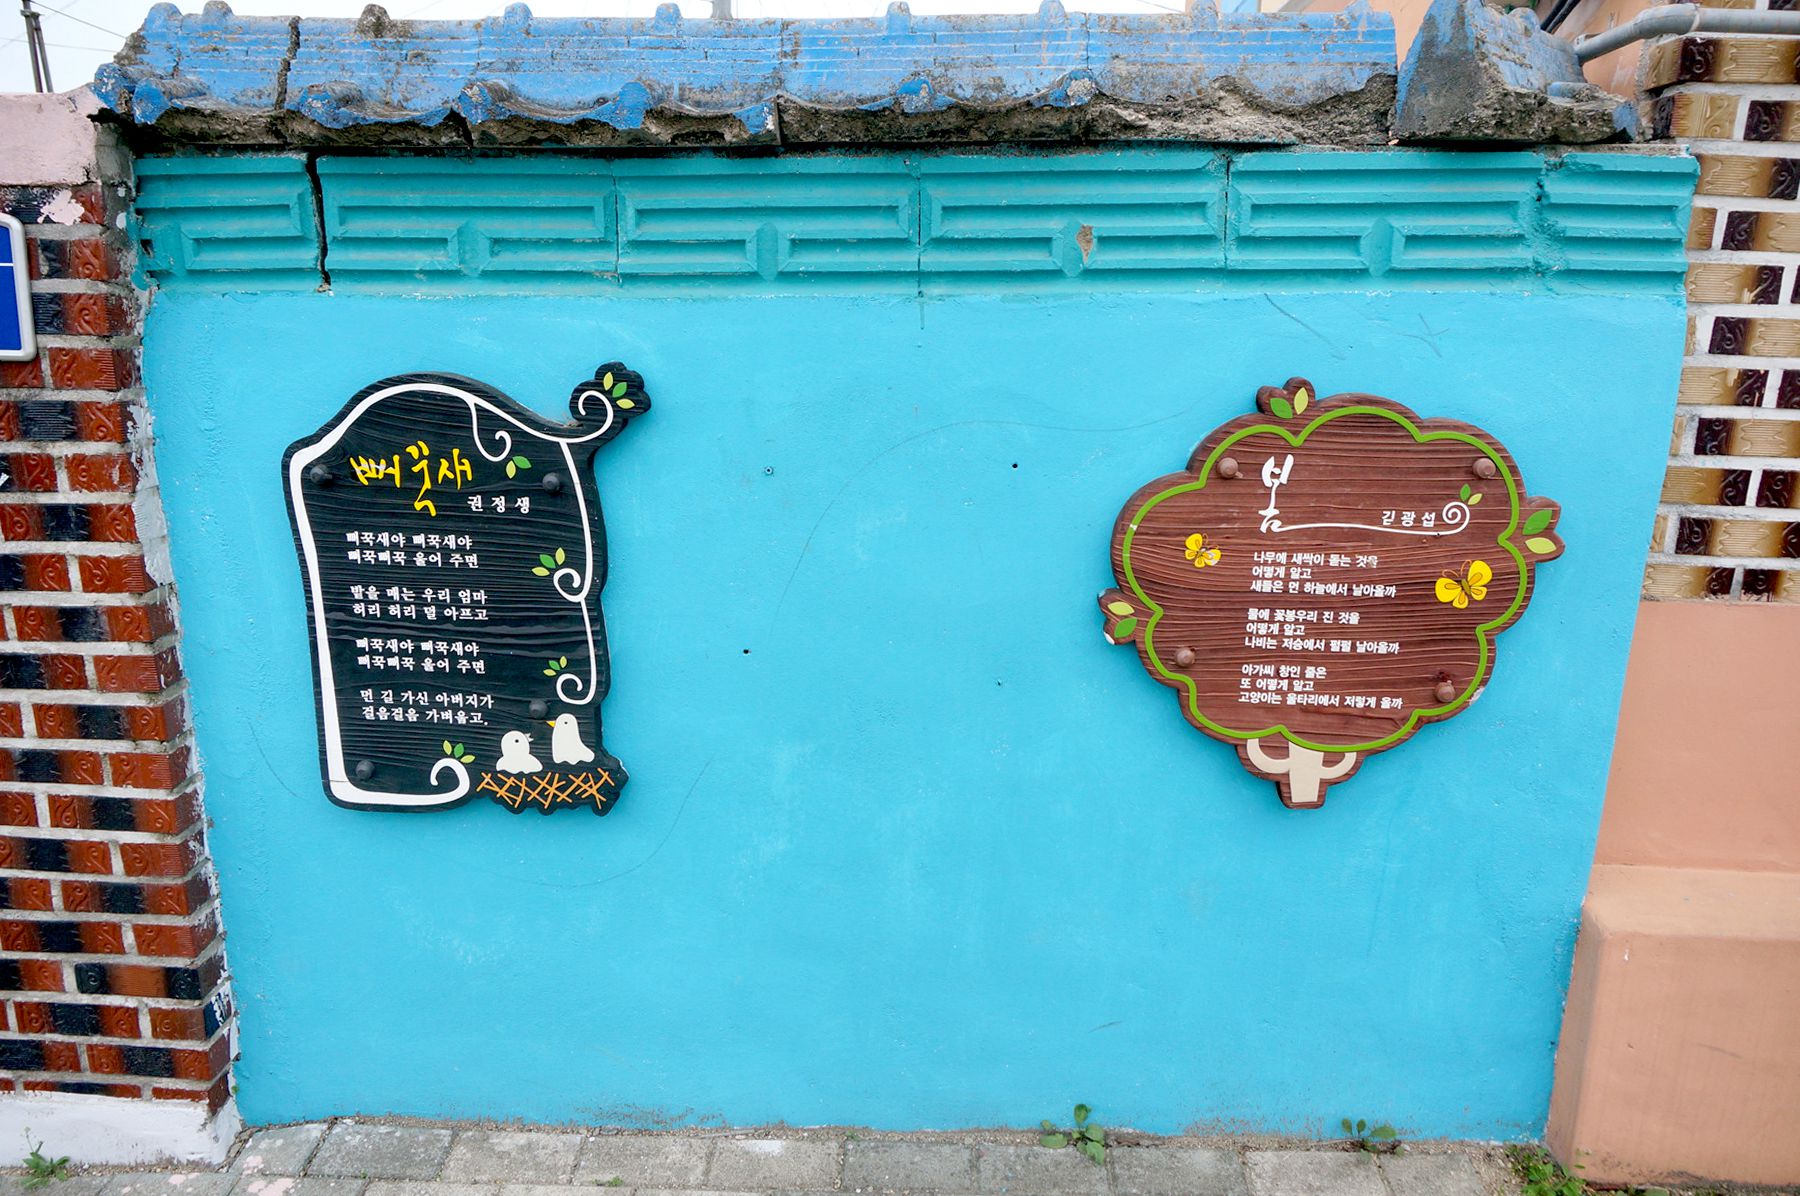 뻐꾹새
권정생
뻐꾹새야 뻐꾹새야
뻐꾹뻐꾹 울어 주면
밭을 매는 우리 엄마
허리 허리 덜 아프고
뻐꾹새야 뻐꾹새야
뻐꾹뻐꾹 울어 주면
먼 길 가신 아버지가
걸음걸음 가벼웁고.
봄
김광섭
나무에 새싹이 돋는 것을
어떻게 알고
새들은 먼 하늘에서 날아올까
물에 꽃봉우리 진 것을
어떻게 알고
나비는 저승에서 펄펄 날아올까
아가씨 창인 줄은
또 어떻게 알고
고양이는 울타리에서 저렇게 올까